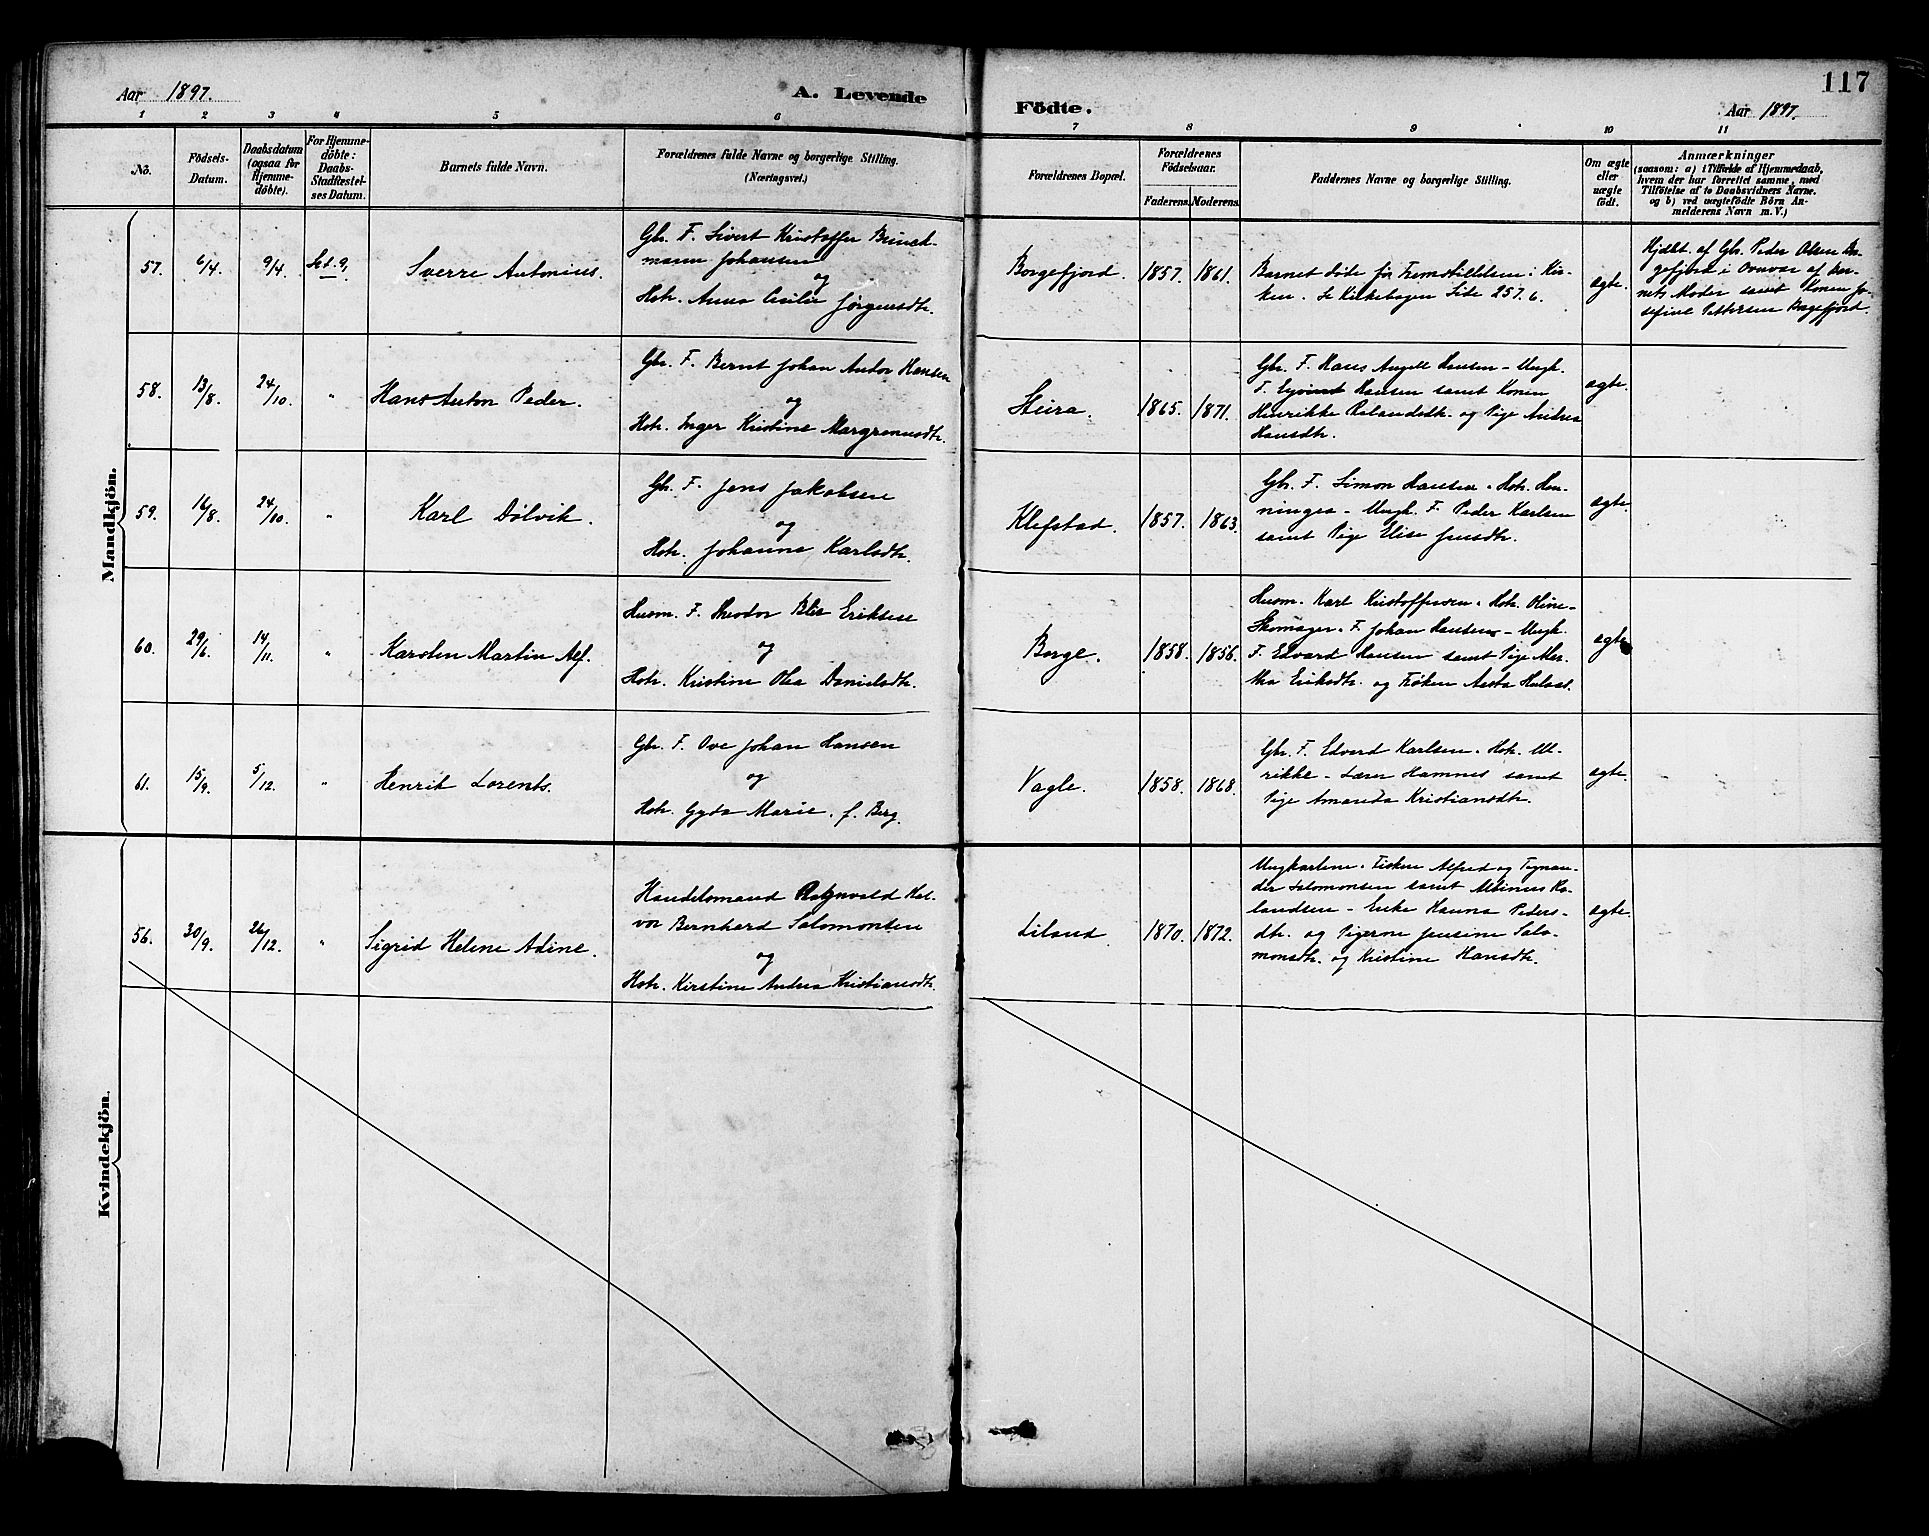 117
Aar 1897.
A. Levende
Födte.
Aar 1897.
1 2 3 4 5 6 7 8 9 10 11
No.
Födsels-
Datum.
Daabsdatum
(ogsaa for
Hjemme-
döbte).
For Hjemme-
döbte:
Daabs-
Stadfæstel-
ses Datum.
Barnets fulde Navn.
Forældrenes fulde Navne og borgerlige Stilling.
(Næringsvei.)
Forældrenes Bopæl.
Forældrenes
Födselsaar.
Faderens. Moderens.
Faddernes Navne og borgerlige Stilling.
Om ægte
eller
uægte
födt.
Anmærkninger
(saasom: a) i Tilfælde af Hjemmedaab,
hvem der har forrettet samme, med
Tilföielse af to Daabsvidners Navne.
og b) ved uægtefödte Börn An-
melderens Navn m.V.)
Mandkjön.
57. 6/4. 9/4.
Sverre Antonius.
Gbr. F. Sivert Kristoffer Brinck-
mann Johansen
og
Hstr. Anna Cecilie Jørgensdtr.
Borgefjord. 1857. 1861.
Barnet døde før Fremstillelsen i Kir-
ken. Se Kirkebogen Side 257. 6.
ægte.
Hjdbt. af Gbr. Peder Olsen Bor-
gefjord i Overvær af Bar-
nets Moder samt Konen Jo-
sefine Pettersen Borgefjord.
58. 13/8. 24/10. "
Hans Anton Peder.
Gbr. F. Bernt Johan Anton Hansen
og
Hstr. Inger Kristine Margrensdtr.
Stura. 1865. 1871.
Gbr. F. Hans Angell Hansen - Ungk.
F. Eyvind Hansen samt Konen
Henrikke Rolandsdtr. og Pige Andrea
Hansdtr.
ægte.
59. 16/8. 24/10. "
Karl Dølvik.
Gbr. F. Jens Jakobsen
og
Hstr. Johanna Karlsdtr.
Klefstad. 1857. 1863.
Gbr. F. Simon Hansen. Hstr. Hen-
ninga - Ungk. F. Peder Karlsen
samt Pige Elise Jensdtr.
ægte.
60. 29/6. 14/11. "
Karsten Martin Alf.
Husm. F. Theodor Blix Eriksen
og
Hstr. Kristine Olea Danielsdtr.
Borge. 1858. 1856.
Husm. Karl Kristoffersen. Hstr. Oline -
Skomager. F. Johan Hansen - Ungk.
F. Edvard Hansen samt Pige Mar-
tha Eriksdtr. og Frøken Aasta
ægte
61. 15/9. 5/12. "
Henrik Lorents.
Gbr. F. Ove Johan Hansen
og
Hstr. Gyda Marie. f. Berg.
Vagle. 1858. 1868.
Gbr. F. Edvard Karlsen. Hstr. Ul-
rikke - Lærer Hamnes samt
Pige Amanda Kristiansdtr.
ægte.
Kvindekjön.
56. 30/9. 26/12. "
Sigrid Helene Adine.
Handelsmand Ragnvald Hal-
vor Bernhard Salomonsen
og
Hstr. Kirstine Andrea Kristiansdtr.
Liland. 1870. 1872.
Ungkarlene. Fiskere Alfred og Fernan-
der Salomonsen samt Albinus Ro-
landsen - Enke Hanna Peders-
dtr. og Pigerne Jensine Salo-
monsdtr. og Kristine Hansdtr.
ægte.